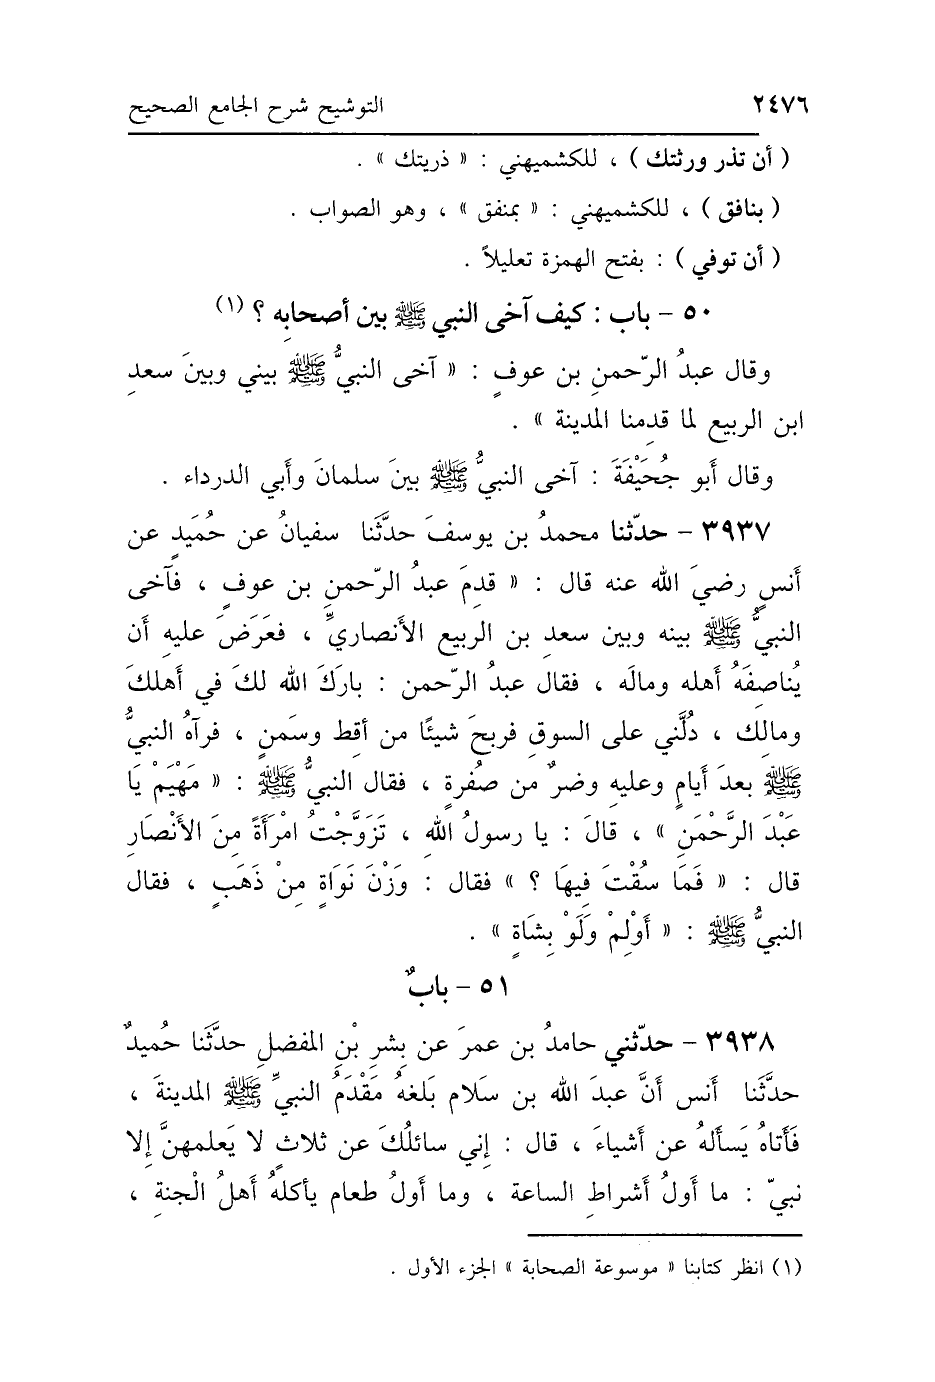 ٢٤٧٦ التوشيح شرح الجامع الصحيح
( أن تذر ورثتك ) ، للكشميهني : « ذريتك » .
( بنافق ) ، للكشميهني : « بمنفق » ، وهو الصواب .
( أن توفي ) : بفتح الهمزة تعليلاً .
٥٠ – باب : كيف آخى النبي ﷺ بين أصحابِه ؟ (١)
وقال عبدُ الرّحمنِ بن عوفٍ : « آخى النبيُّ ﷺ بيني وبينَ سعدِ
ابن الربيع لما قدِمنا المدينة » .
وقال أَبو جُحَيْفَةَ : آخى النبيُّ ﷺ بينَ سلمانَ وأَبي الدرداء .
٣٩٣٧ – حدّثنا محمدُ بن يوسفَ حدَّثَنا سفيانُ عن حُمَيدٍ عن
أَنسٍ رضيَ الله عنه قال : « قدِمَ عبدُ الرّحمنِ بن عوفٍ ، فآخى
النبيُّ ﷺ بينه وبين سعدِ بن الربيع الأَنصاريِّ ، فعَرَضَ عليهِ أَن
يُناصِفَهُ أَهله ومالَه ، فقال عبدُ الرّحمن : بارَكَ الله لكَ في أَهلكَ
ومالِك ، دُلَّني على السوقِ فربحَ شيئًا من أقِط وسَمنٍ ، فرآهُ النبيُّ
ﷺ بعدَ أَيامٍ وعليهِ وضرٌ من صُفرةٍ ، فقال النبيُّ ﷺ : « مَهْيَمْ يَا
عَبْدَ الرَّحْمَنِ » ، قالَ : يا رسولُ الله ، تَزَوَّجْتُ امْرَأَةً مِنَ الأَنْصَارِ
قال : « فَمَا سُقْتَ فِيهَا ؟ » فقال : وَزْنَ نَوَاةٍ مِنْ ذَهَبٍ ، فقال
النبيُّ ﷺ : « أَوْلِمْ وَلَوْ بِشَاةٍ » .
٥١ – بابٌ
٣٩٣٨ – حدّثني حامدُ بن عمرَ عن بِشرِ بْنِ المفضلِ حدَّثَنا حُميدٌ
حدَّثَنا أَنس أَنَّ عبدَ الله بن سَلام بَلغهُ مَقْدَمُ النبيِّ ﷺ المدينةَ ،
فَأَتاهُ يَسأَلهُ عن أَشياءَ ، قال : إِني سائلُكَ عن ثلاثٍ لا يَعلمهنَّ إِلا
نبيّ : ما أَولُ أَشراطِ الساعة ، وما أَولُ طعام يأكلهُ أَهلُ الْجنةِ ،
(١) انظر كتابنا « موسوعة الصحابة » الجزء الأول .